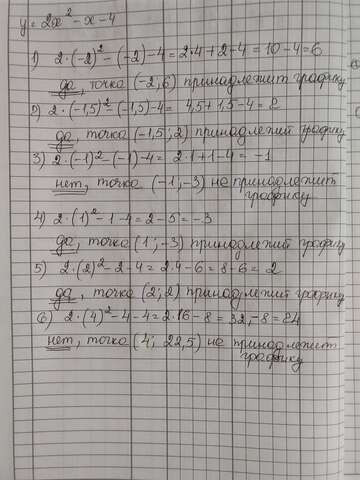 y = 2x² - x - 4
1) 2·(-2)² - (-2) - 4 = 2·4 + 2 - 4 = 10 - 4 = 6
да, точка (-2; 6) принадлежит графику
2) 2·(-1,5)² - (-1,5) - 4 = 4,5 + 1,5 - 4 = 2
да, точка (-1,5; 2) принадлежит графику
3) 2·(-1)² - (-1) - 4 = 2·1 + 1 - 4 = -1
нет, точка (-1; -3) не принадлежит
графику
4) 2·(1)² - 1 - 4 = 2 - 5 = -3
да, точка (1; -3) принадлежит графику
5) 2·(2)² - 2 - 4 = 2·4 - 6 = 8 - 6 = 2
да, точка (2; 2) принадлежит графику
6) 2·(4)² - 4 - 4 = 2·16 - 8 = 32 - 8 = 24
нет, точка (4; 22,5) не принадлежит
графику